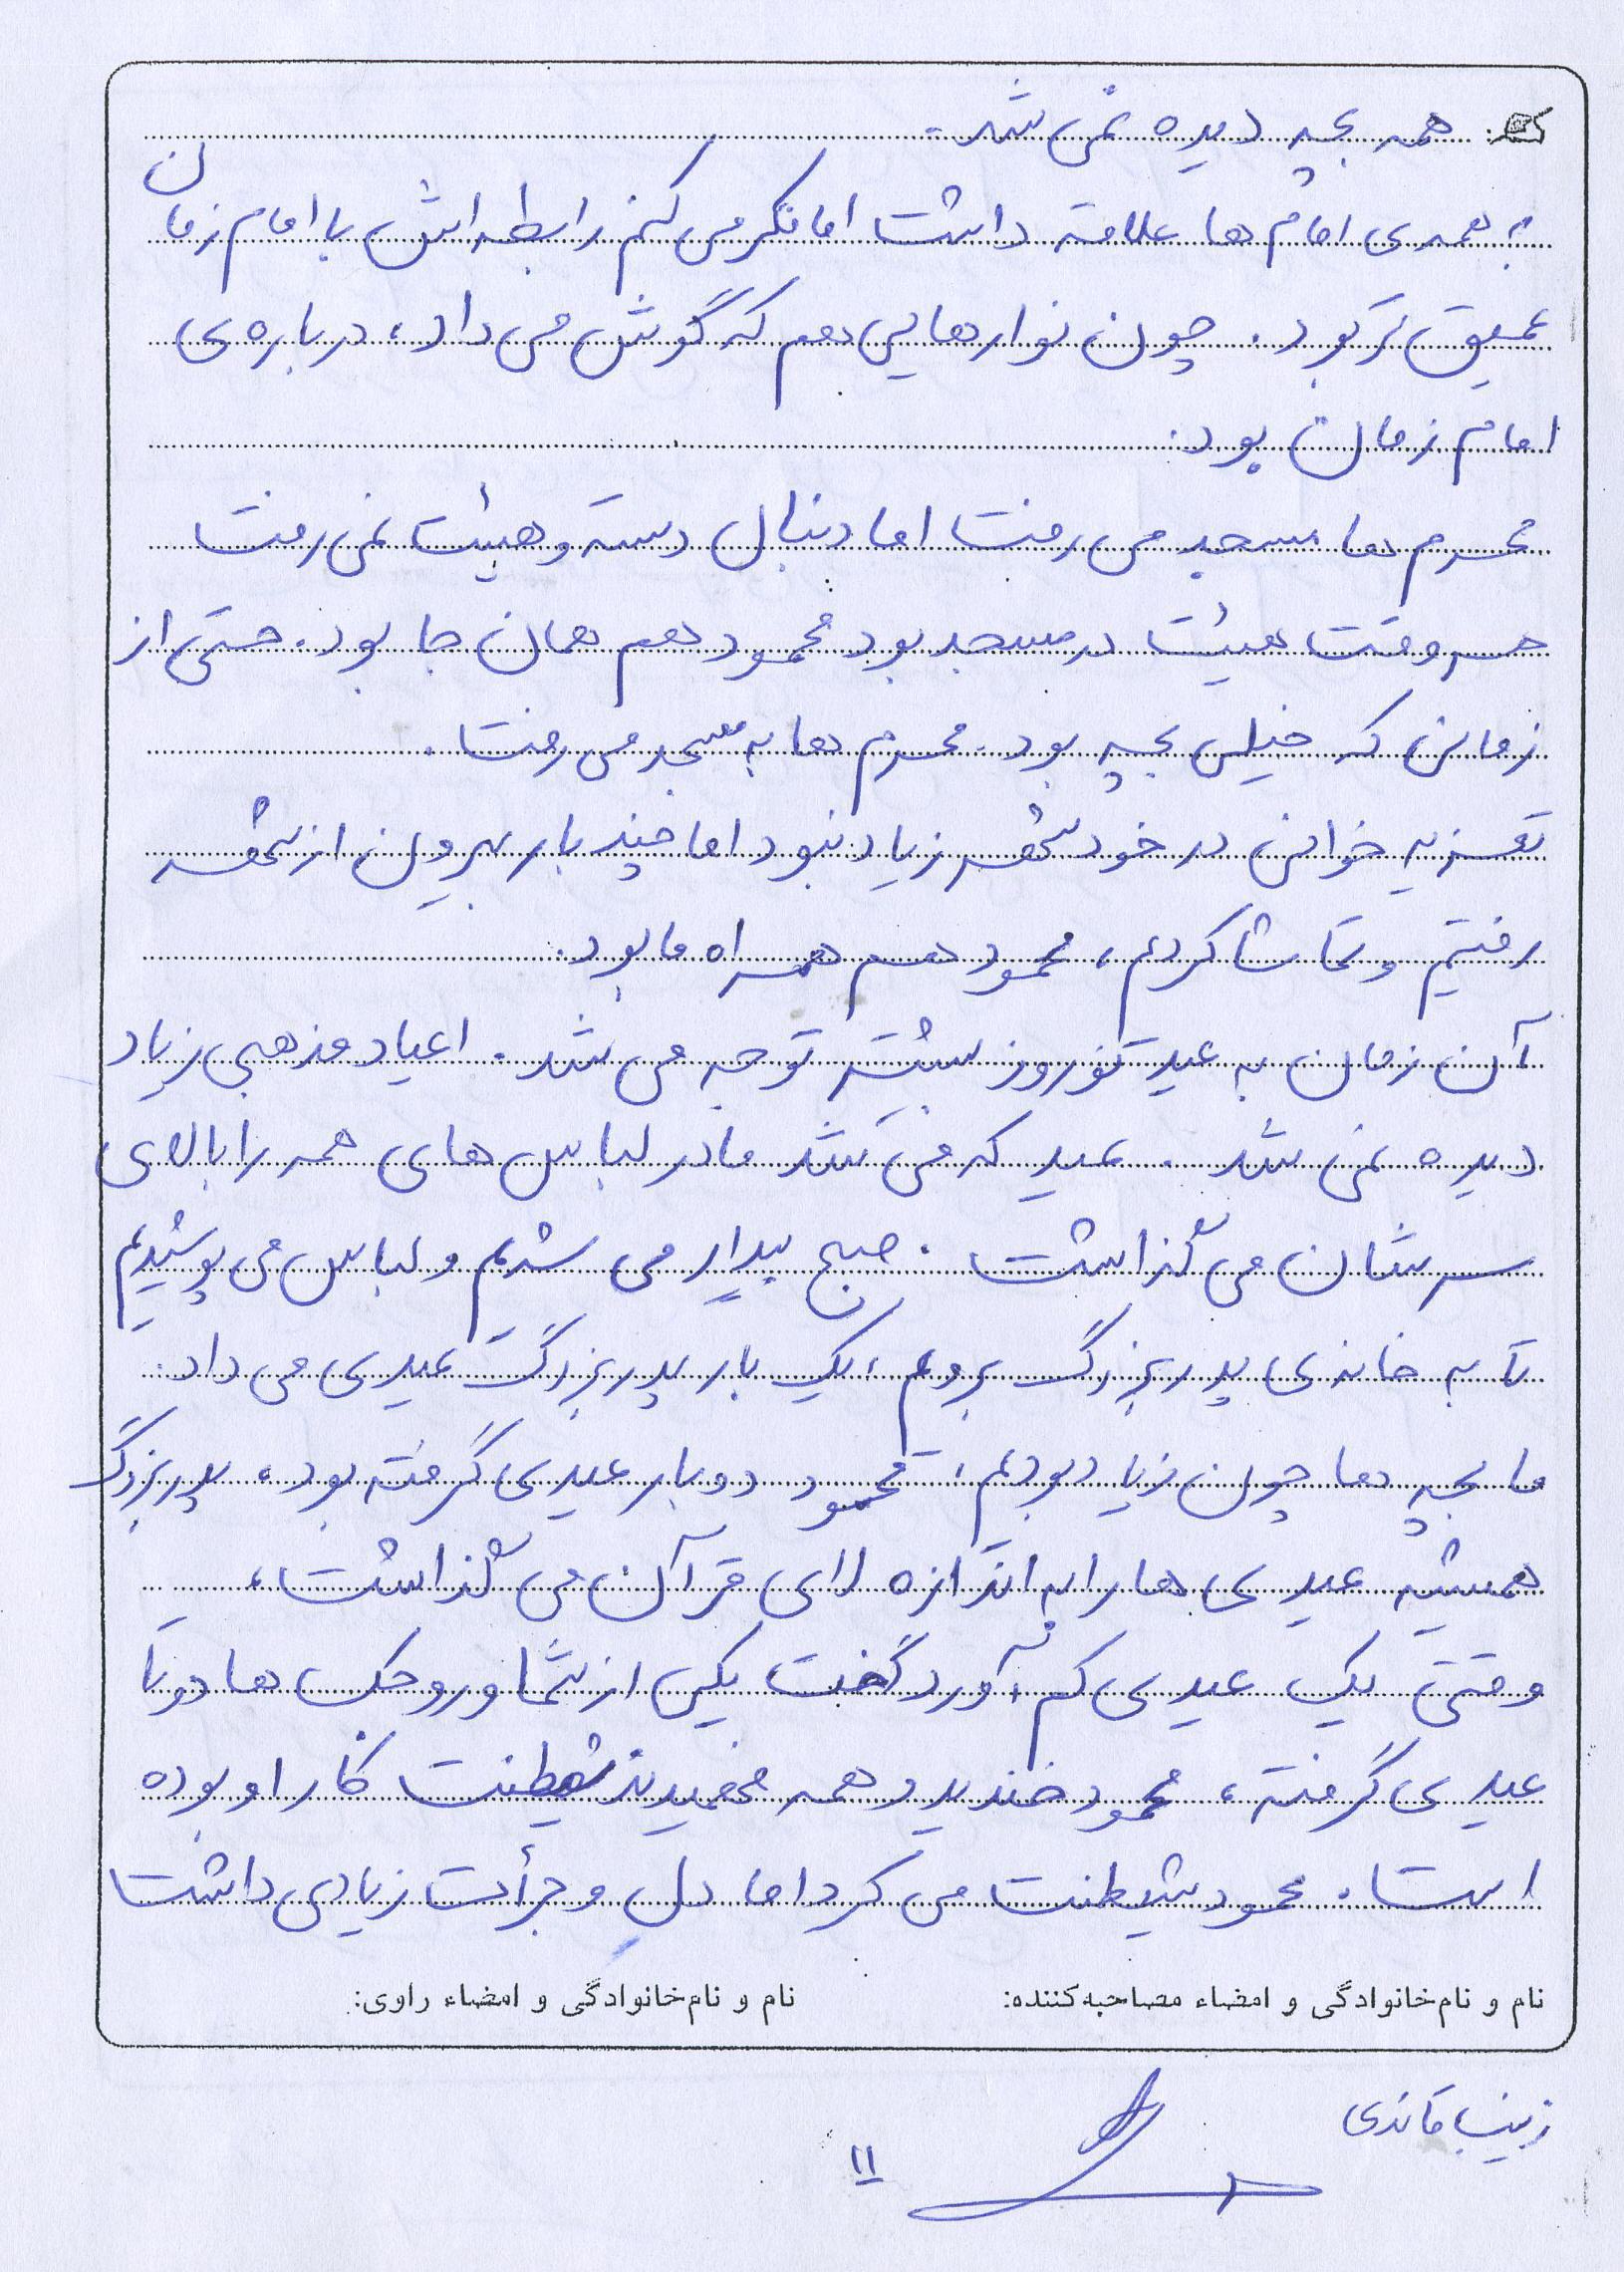 همه بچه دیده نمی شد.
به همه ی امام ها علاقه داشت اما فکر می کنم رابطه اش با امام زمان
عمیق تر بود. چون نوارهایی هم که گوش می داد، درباره ی
امام زمان بود.
محرم ها مسجد می رفت اما دنبال دسته و هیئت نمی رفت
هر وقت هیئت در مسجد بود محمود هم همان جا بود. حتی از
زمانی که خیلی بچه بود محرم ها به مسجد می رفت.
تعزیه خوانی در خود شهر زیاد نبود اما چند بار بیرون از شهر
رفتیم و تماشا کردیم، محمود هم همراه ما بود.
آن زمان به عید نوروز بیشتر توجه می شد. اعیاد مذهبی زیاد
دیده نمی شد. عید که می شد مادر لباس های همه را بالای
سرشان می گذاشت. صبح بیدار می شدیم و لباس می پوشیدیم
تا به خانه ی پدربزرگ برویم، یک بار پدربزرگ عیدی می داد.
ما بچه ها چون زیاد بودیم، محمود دوبار عیدی گرفته بود، پدربزرگ
همیشه عیدی ها را به اندازه لای قرآن می گذاشت،
وقتی یک عیدی کم آورد گفت یکی از شما وروجک ها دوتا
عیدی گرفته، محمود خندید و همه فهمیدند شیطنت کار او بوده
است. محمود شیطنت می کرد اما دل و جرأت زیادی داشت
نام و نام‌خانوادگی و امضاء مصاحبه‌کننده: نام و نام‌خانوادگی و امضاء راوی:
زینب
۱۱